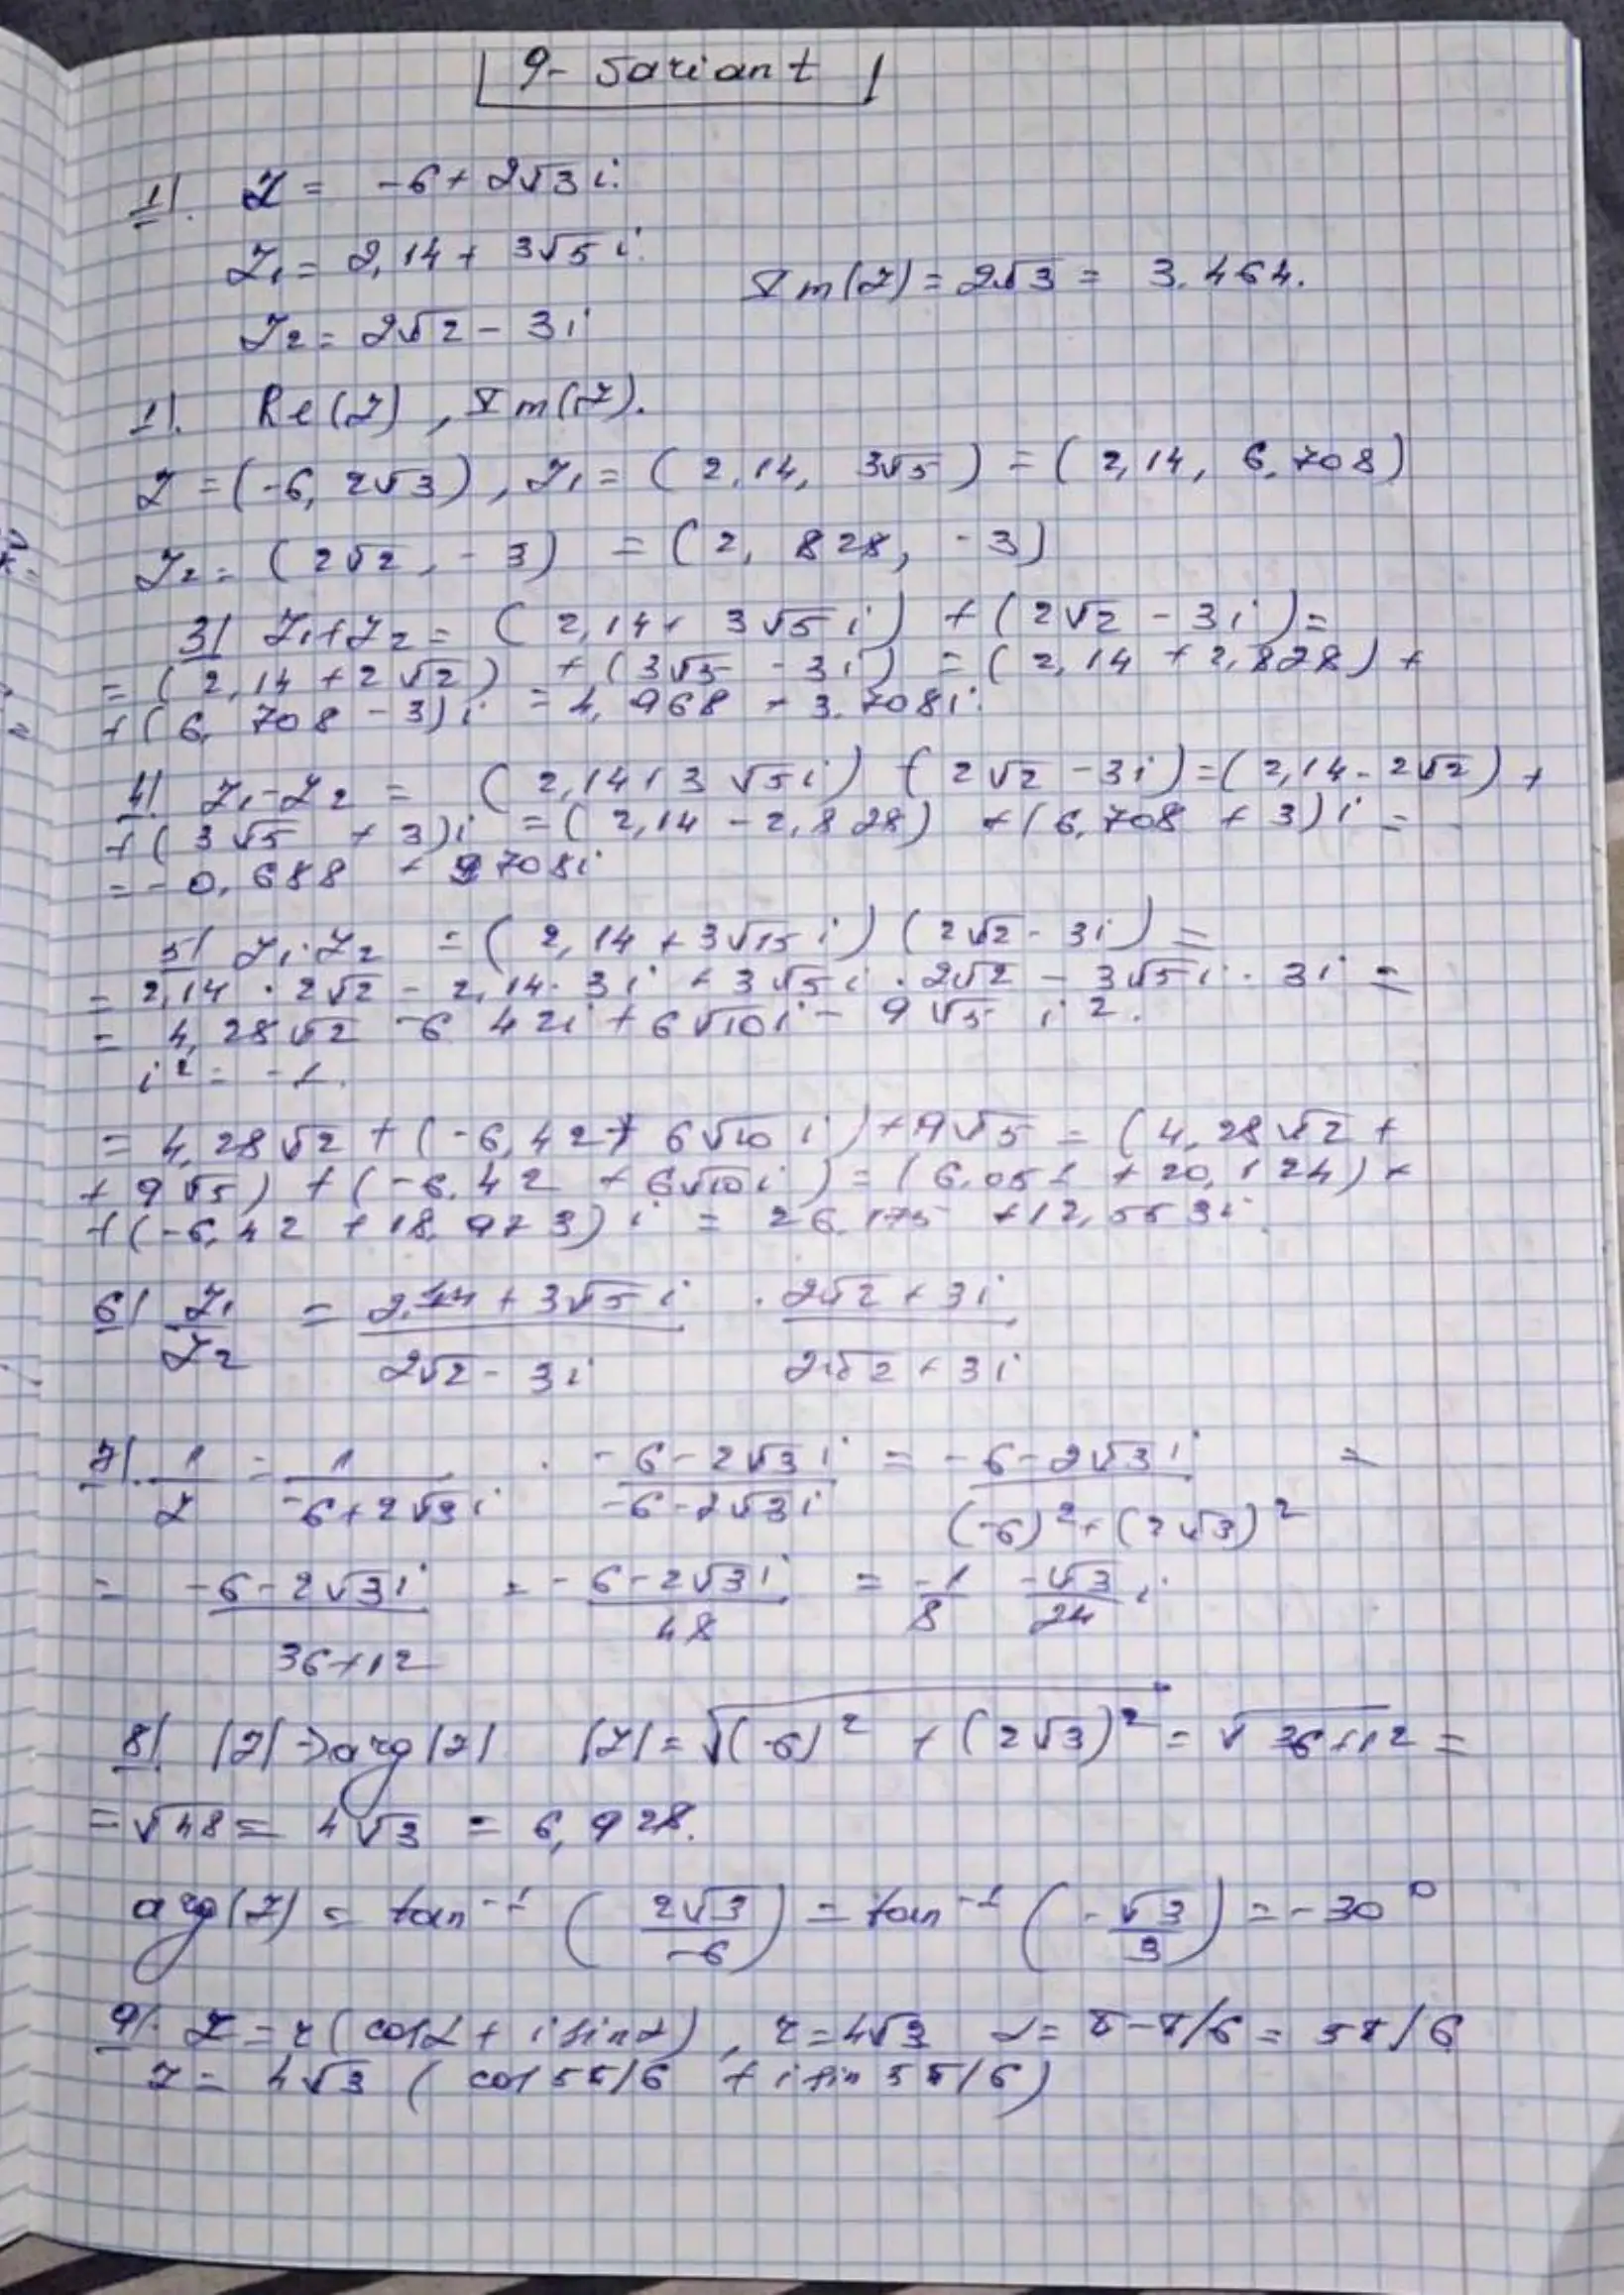 9- variant
1). Z = -6 + 2√3 i.
Z₁ = 2,14 + 3√5 i.
Im(Z) = 2√3 = 3.464.
Z₂ = 2√2 - 3i
1). Re(Z), Im(Z).
Z = (-6, 2√3), Z₁ = (2,14, 3√5) = (2,14, 6,708)
Z₂ = (2√2, -3) = (2,828, -3)
3) Z₁+Z₂ = (2,14 + 3√5 i) + (2√2 - 3i) =
= (2,14 + 2√2) + (3√5 - 3i) = (2,14 + 2,828) +
+ (6,708 - 3)i = 4,968 + 3.708i.
4) Z₁-Z₂ = (2,14 + 3√5 i) - (2√2 - 3i) = (2,14 - 2√2) +
+ (3√5 + 3)i = (2,14 - 2,828) + (6,708 + 3)i =
= -0,688 + 9 708i
5) Z₁·Z₂ = (2,14 + 3√15 i) (2√2 - 3i) =
= 2,14 · 2√2 - 2,14 · 3i + 3√5 i · 2√2 - 3√5 i · 3i =
= 4,28√2 - 6 42i + 6√10i - 9√5 i².
i² = -1.
= 4,28√2 + (-6,42 + 6√10 i) + 9√5 = (4,28√2 +
+ 9√5) + (-6.42 + 6√10 i) = (6.051 + 20,124) +
+ (-6,42 + 18,973) i = 26.175 + 12,553i.
6) Z₁/Z₂ = (2,14 + 3√5 i)/(2√2 - 3i) · (2√2 + 3i)/(2√2 + 3i)
7). 1/Z = 1/(-6 + 2√3 i) · (-6 - 2√3 i)/(-6 - 2√3 i) = (-6 - 2√3 i)/((-6)² + (2√3)²) =
= (-6 - 2√3 i)/(36 + 12) = (-6 - 2√3 i)/48 = -1/8 -√3/24 i.
8) |Z| -> arg|Z| |Z| = √((-6)² + (2√3)²) = √(36+12) =
= √48 = 4√3 = 6,928.
arg(Z) = tan⁻¹ (2√3/-6) = tan⁻¹ (-√3/3) = -30°
9). Z = r(cosα + i sinα), r = 4√3 α = π - π/6 = 5π/6
Z = 4√3 (cos 5π/6 + i sin 5π/6)